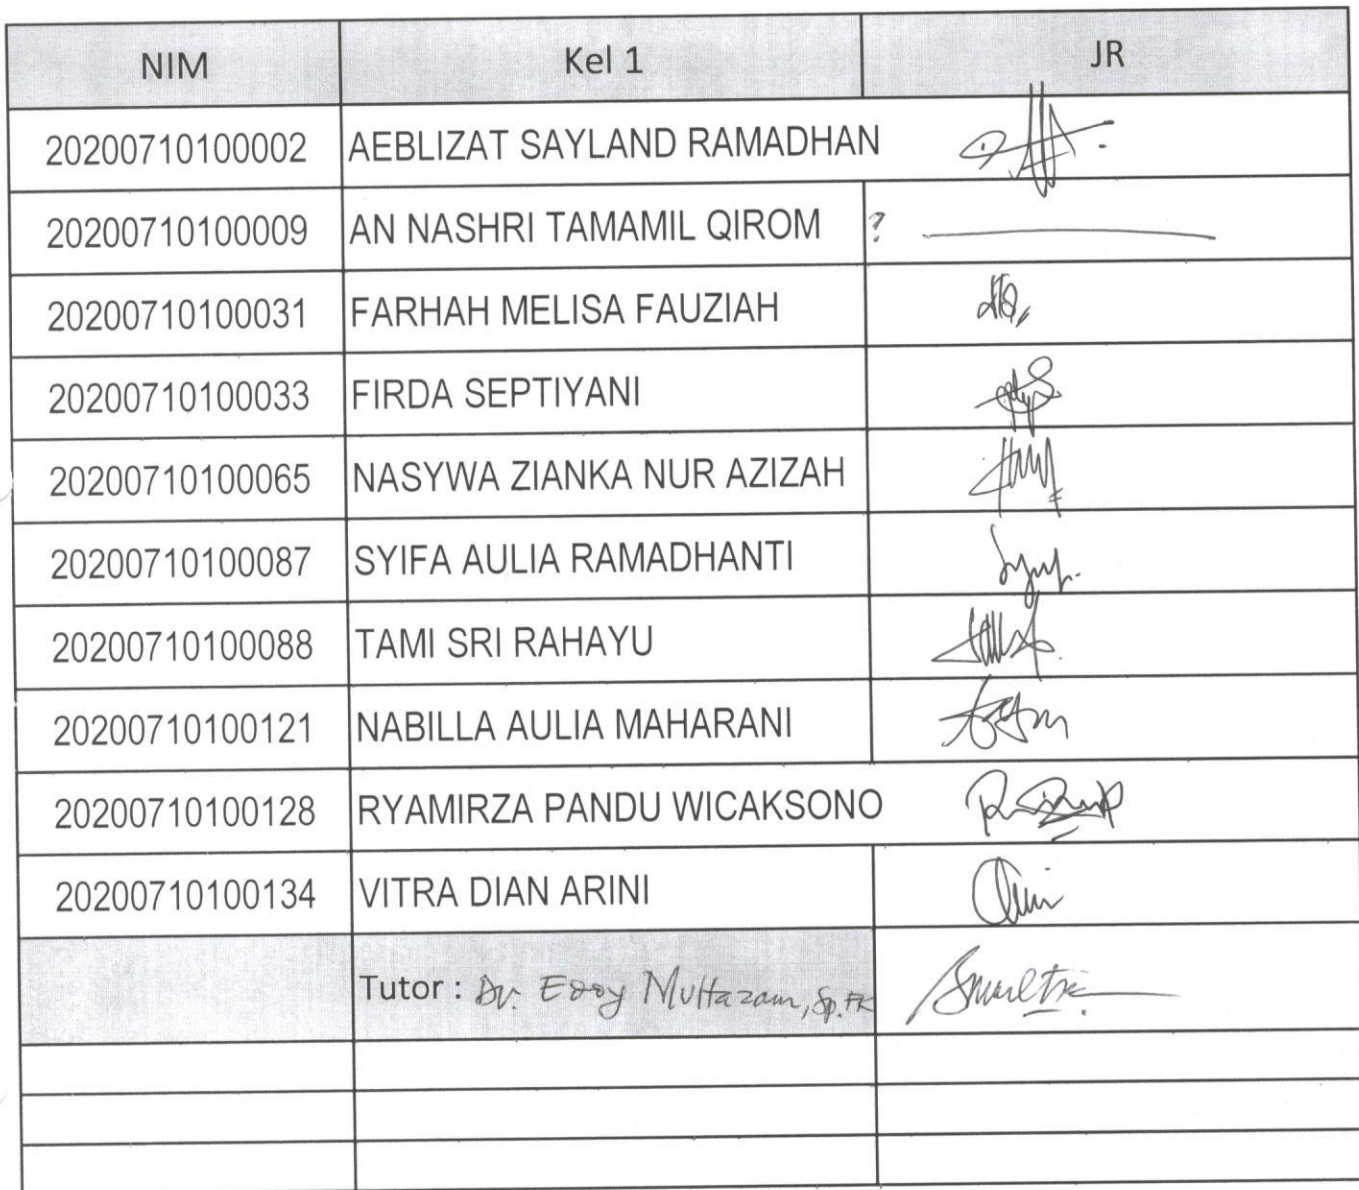 NIM Kel 1 JR
20200710100002 AEBLIZAT SAYLAND RAMADHAN
20200710100009 AN NASHRI TAMAMIL QIROM ?
20200710100031 FARHAH MELISA FAUZIAH
20200710100033 FIRDA SEPTIYANI
20200710100065 NASYWA ZIANKA NUR AZIZAH
20200710100087 SYIFA AULIA RAMADHANTI
20200710100088 TAMI SRI RAHAYU
20200710100121 NABILLA AULIA MAHARANI
20200710100128 RYAMIRZA PANDU WICAKSONO
20200710100134 VITRA DIAN ARINI
Tutor : Dr. Multazam, Sp.FK